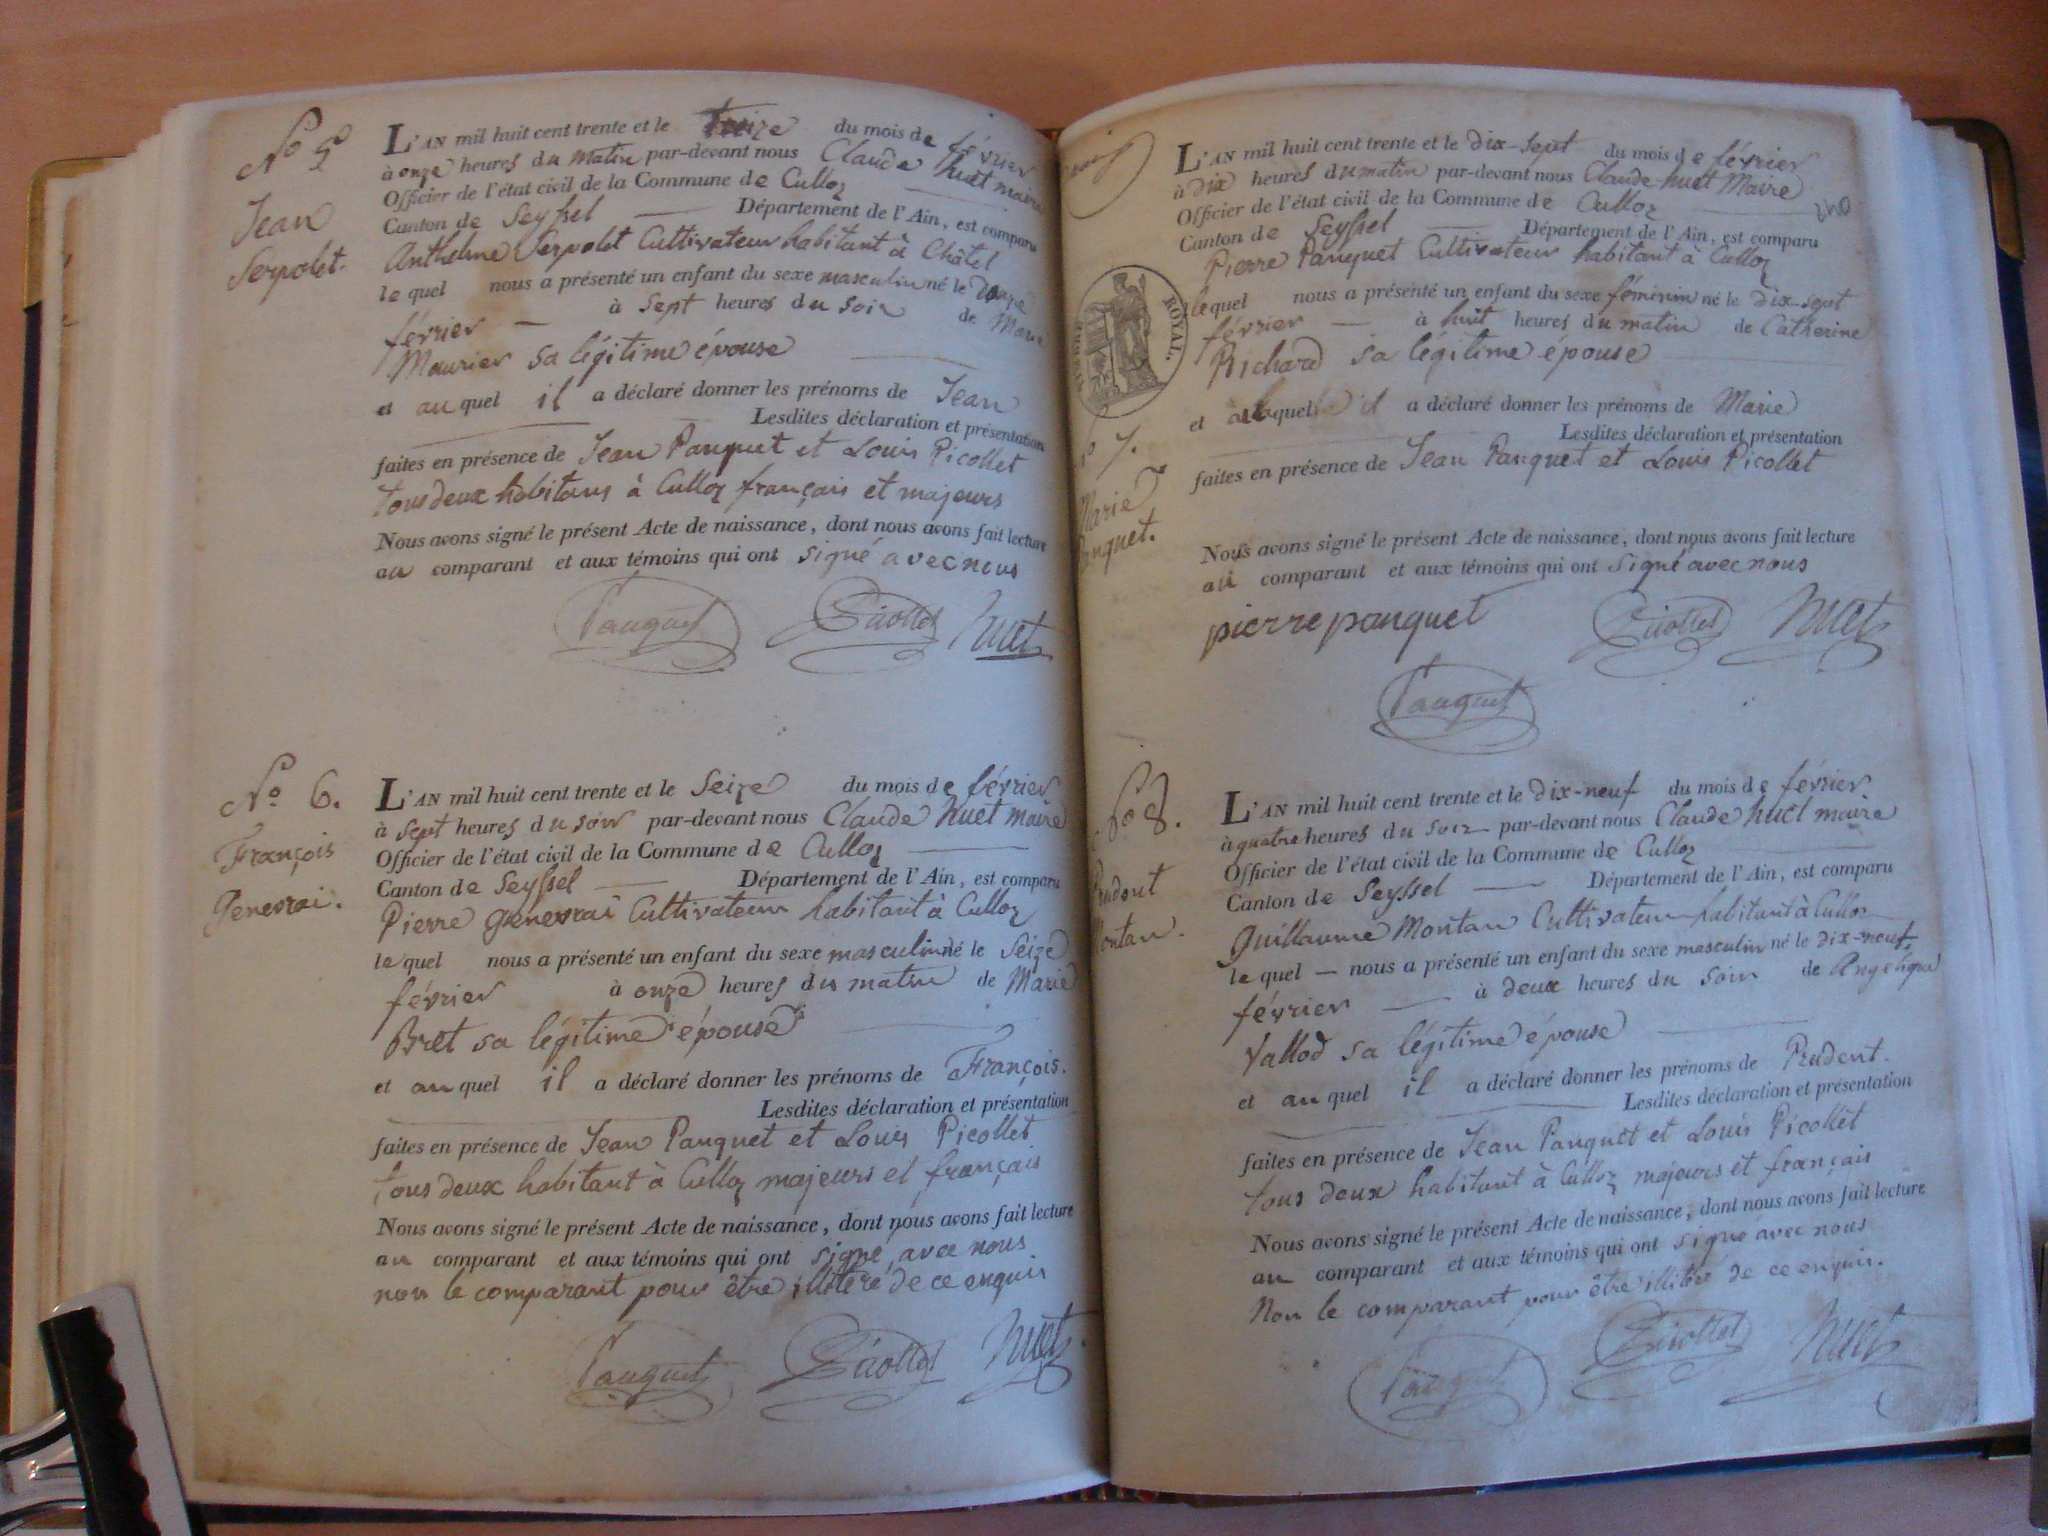 No 5
Jean
Serpolet.
L'AN mil huit cent trente et le Treize du mois de février
à onze heures du matin par-devant nous Claude huet maire
Officier de l'état civil de la Commune de Culloz
Canton de Seyssel Département de l'Ain, est comparu
Anthelme Serpolet Cultivateur habitant à Châtel
lequel nous a présenté un enfant du sexe masculin né le douze
février à sept heures du soir de Marie
Mourier sa légitime épouse
et auquel il a déclaré donner les prénoms de Jean
Lesdites déclaration et présentation
faites en présence de Jean Pauquet et Louis Picollet
tous deux habitans à Culloz français et majeurs
Nous avons signé le présent Acte de naissance, dont nous avons fait lecture
au comparant et aux témoins qui ont signé avec nous
Pauquet Picollet huet
No 6.
François
Genevrai.
L'AN mil huit cent trente et le Seize du mois de février
à sept heures du soir par-devant nous Claude huet maire
Officier de l'état civil de la Commune de Culloz
Canton de Seyssel Département de l'Ain, est comparu
Pierre genevrai Cultivateur habitant à Culloz
lequel nous a présenté un enfant du sexe masculin né le Seize
février à onze heures du matin de Marie
Bret sa légitime épouse
et auquel il a déclaré donner les prénoms de François.
Lesdites déclaration et présentation
faites en présence de Jean Pauquet et Louis Picollet
tous deux habitant à Culloz majeurs et français
Nous avons signé le présent Acte de naissance, dont nous avons fait lecture
au comparant et aux témoins qui ont signé avec nous
non le comparant pour être illitéré de ce enquis
Pauquet Picollet huet
240
ROYAL.
No 7.
Marie
Pauquet.
L'AN mil huit cent trente et le dix-sept du mois de février
à dix heures du matin par-devant nous Claude huet Maire
Officier de l'état civil de la Commune de Culloz
Canton de Seyssel Département de l'Ain, est comparu
Pierre Pauquet Cultivateur habitant à Culloz
lequel nous a présenté un enfant du sexe féminin né le dix-sept
février à huit heures du matin de Catherine
Richard sa légitime épouse
et à laquelle il a déclaré donner les prénoms de Marie
Lesdites déclaration et présentation
faites en présence de Jean Pauquet et Louis Picollet
Nous avons signé le présent Acte de naissance, dont nous avons fait lecture
au comparant et aux témoins qui ont signé avec nous
pierre pauquet Picollet huet
Pauquet
No 8.
Prudent
Montan.
L'AN mil huit cent trente et le dix-neuf du mois de février.
à quatre heures du soir par-devant nous Claude huet maire
Officier de l'état civil de la Commune de Culloz
Canton de Seyssel Département de l'Ain, est comparu
guillaume Montan Cultivateur habitant à Culloz
lequel nous a présenté un enfant du sexe masculin né le dix-neuf
février à deux heures du soir de Angélique
Vallod sa légitime épouse
et auquel il a déclaré donner les prénoms de Prudent.
Lesdites déclaration et présentation
faites en présence de Jean Pauquet et Louis Picollet
tous deux habitant à Culloz majeurs et français
Nous avons signé le présent Acte de naissance, dont nous avons fait lecture
au comparant et aux témoins qui ont signé avec nous
Non le comparant pour être illitéré de ce enquis.
Pauquet Picollet huet